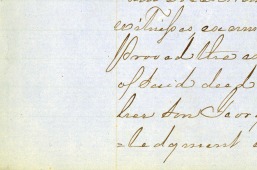 witness, exam
proved the a
of said deed
her son Geor
=ledgment